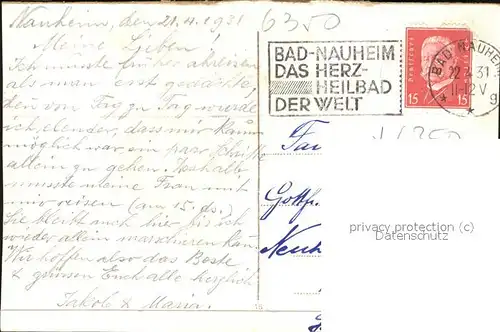 Nauheim, den 21.4.1931
Meine Lieben!
Ich musste früher abreisen
als man erst gedachte,
denn von Tag zu Tag wurde
ich elender, dass mir kaum
möglich war ein paar Schritte
allein zu gehen. Deshalb
musste meine Frau mit
mir reisen (am 15. ds.)
Sie bleibt auch hier bis ich
wieder allein marschieren kann.
Wir hoffen also das Beste
& grüssen Euch alle herzlich
Jakob & Maria.
6350
BAD-NAUHEIM
DAS HERZ-
HEILBAD
DER WELT
Deutsches
15 15
BAD NAUHEIM
22.4.31.
11-12 V
* g *
Fam
Gottfr.
Neuh
privacy protection (c)
Datenschutz